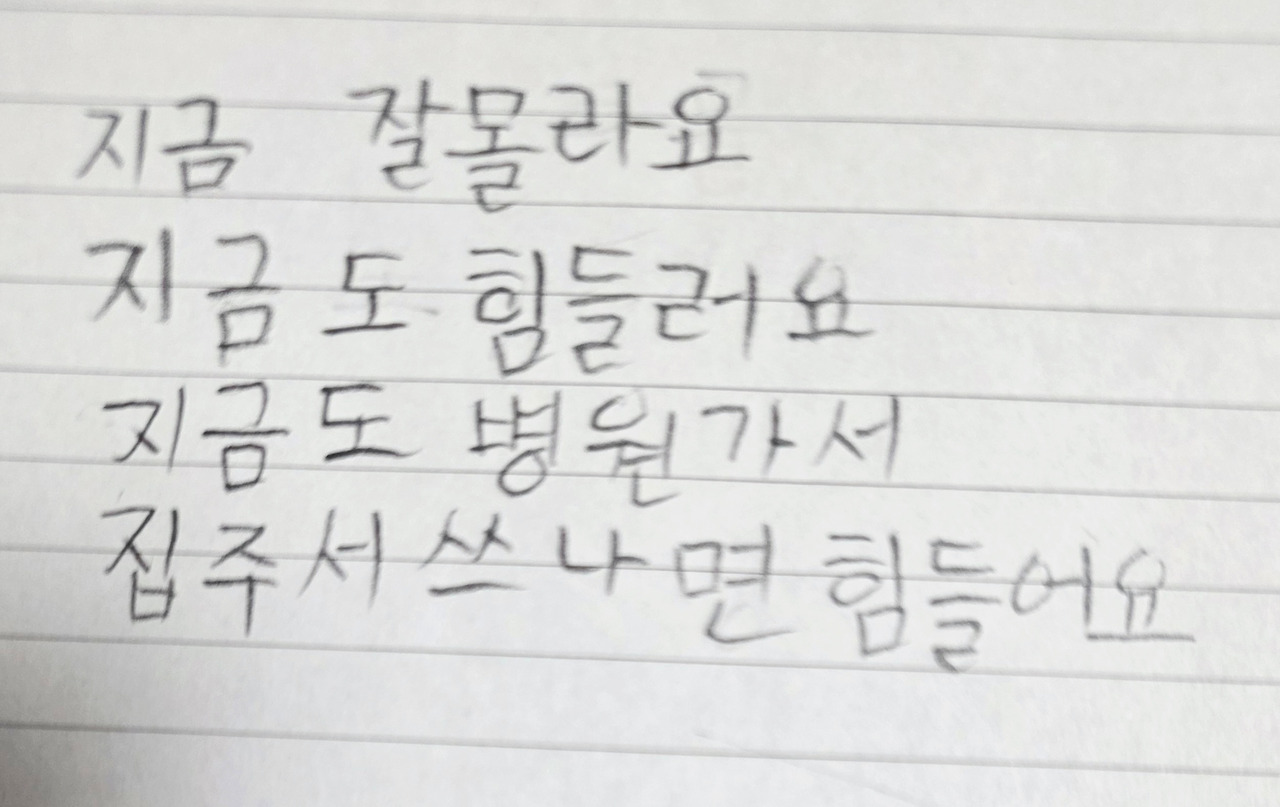 지금 잘몰라요
지금도 힘들러요
지금도 병원가서
집주서 쓰나면 힘들어요